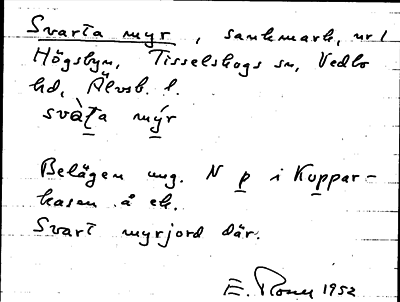 Svarta myr, sankmark, nr 1
Högsbyn, Tisselskogs sn, Vedbo
hd, Älvsb. l.
svàta mýr
Belägen ung. N p i Koppar-
kasen å ek.
Svart myrjord där.
E. 1952